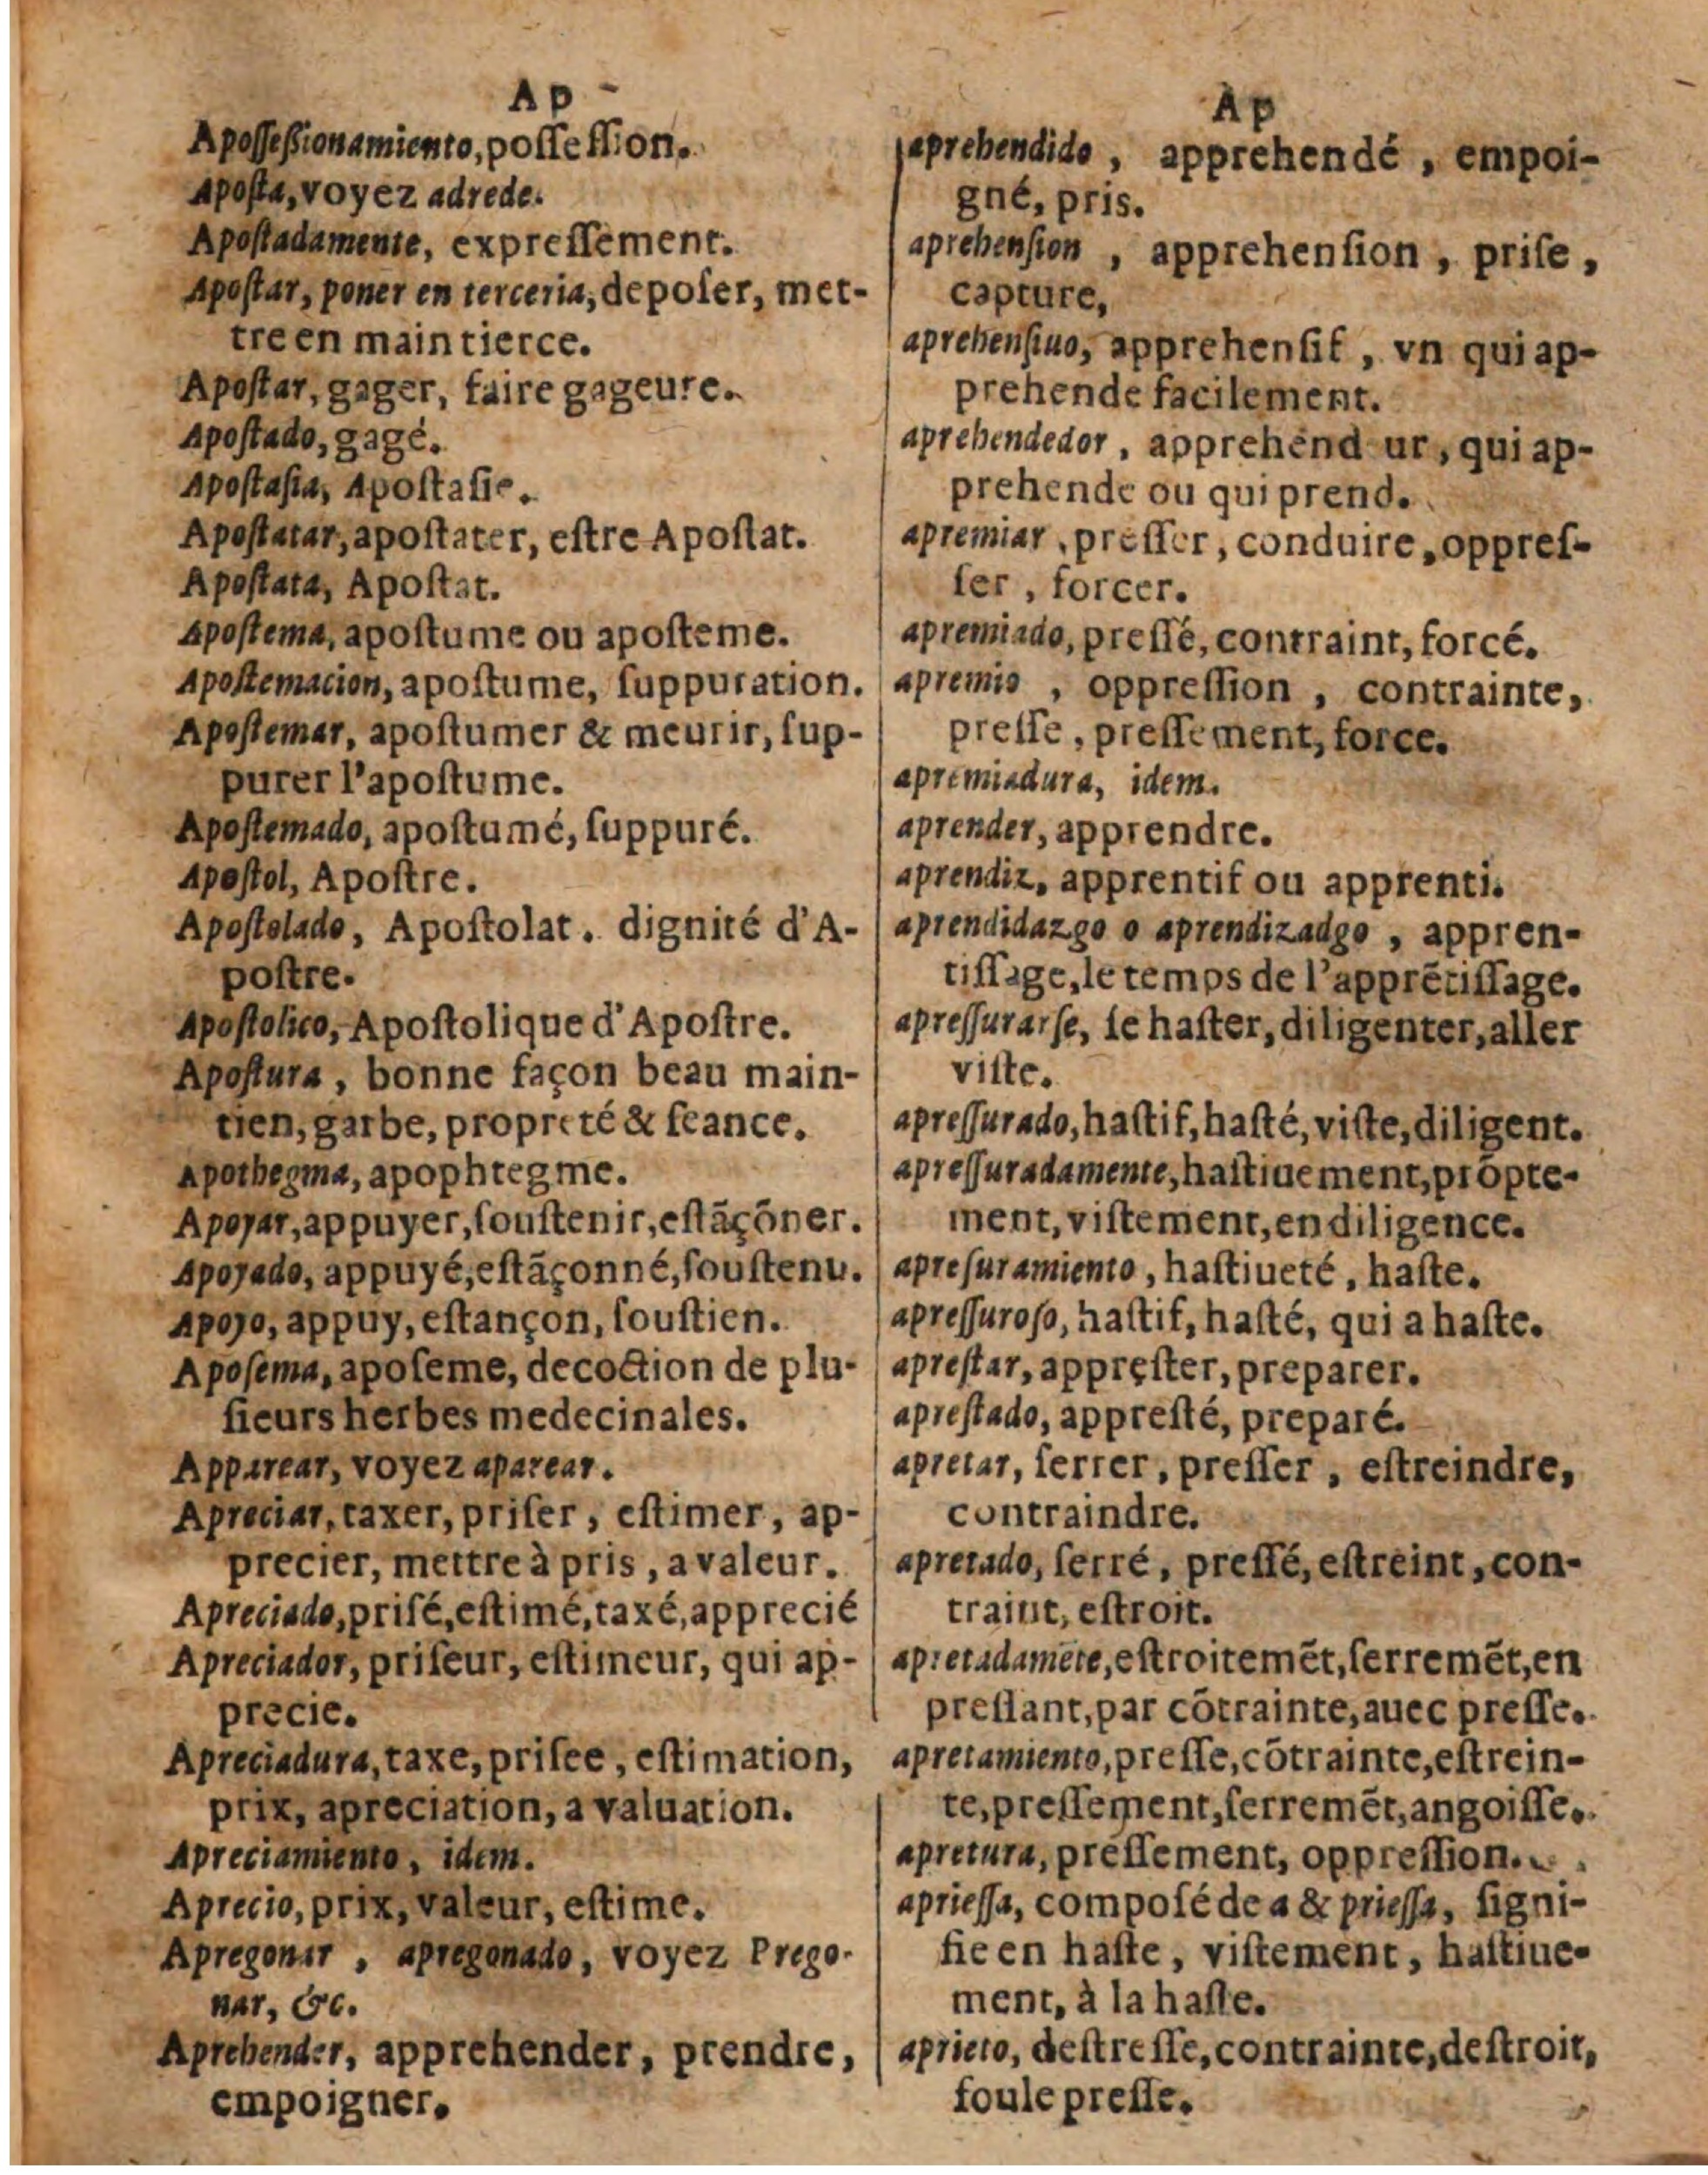 Ap
Apoſſeſſionamiento, poſſeſſion.
Apoſta, voyez adrede.
Apoſtadamente, expreſſement.
Apoſtar, poner en terceria, depoſer, met-
tre en main tierce.
Apoſtar, gager, faire gageure.
Apoſtado, gagé.
Apoſtaſia, Apoſtaſie.
Apoſtatar, apoſtater, eſtre Apoſtat.
Apoſtata, Apoſtat.
Apoſtema, apoſtume ou apoſteme.
Apoſtemacion, apoſtume, ſuppuration.
Apoſtemar, apoſtumer & meurir, ſup-
purer l'apoſtume.
Apoſtemado, apoſtumé, ſuppuré.
Apoſtol, Apoſtre.
Apoſtolado, Apoſtolat. dignité d'A-
poſtre.
Apoſtolico, Apoſtolique d'Apoſtre.
Apoſtura, bonne façon beau main-
tien, garbe, propreté & ſeance.
Apothegma, apophtegme.
Apoyar, appuyer, ſouſtenir, eſtãçõner.
Apoyado, appuyé, eſtãçonné, ſouſtenu.
Apoyo, appuy, eſtançon, ſouſtien.
Apoſema, apoſeme, decoction de plu-
ſieurs herbes medecinales.
Apparear, voyez aparear.
Apreciar, taxer, priſer, eſtimer, ap-
precier, mettre à pris, a valeur.
Apreciado, priſé, eſtimé, taxé, apprecié
Apreciador, priſeur, eſtimeur, qui ap-
precie.
Apreciadura, taxe, priſee, eſtimation,
prix, apreciation, a valuation.
Apreciamiento, idem.
Aprecio, prix, valeur, eſtime.
Apregonar, apregonado, voyez Prego-
nar, &c.
Aprehender, apprehender, prendre,
empoigner.
Ap
aprehendido, apprehendé, empoi-
gné, pris.
aprehenſion, apprehenſion, priſe,
capture,
aprehenſiuo, apprehenſif, vn qui ap-
prehende facilement.
aprehendedor, apprehend ur, qui ap-
prehende ou qui prend.
apremiar, preſſer, conduire, oppreſ-
ſer, forcer.
apremiado, preſſé, contraint, forcé.
apremio, oppreſſion, contrainte,
preſſe, preſſement, force.
apremiadura, idem.
aprender, apprendre.
aprendiz, apprentif ou apprenti.
aprendidazgo o aprendizadgo, appren-
tiſſage, le temps de l'apprẽtiſſage.
apreſſurarſe, ſe haſter, diligenter, aller
viſte.
apreſſurado, haſtif, haſté, viſte, diligent.
apreſſuradamente, haſtiuement, prõpte-
ment, viſtement, en diligence.
apreſuramiento, haſtiueté, haſte.
apreſſuroſo, haſtif, haſté, qui a haſte.
apreſtar, appręſter, preparer.
apreſtado, appreſté, preparé.
apretar, ſerrer, preſſer, eſtreindre,
contraindre.
apretado, ſerré, preſſé, eſtreint, con-
traint, eſtroit.
apretadamẽte, eſtroitemẽt, ſerremẽt, en
preſſant, par cõtrainte, auec preſſe.
apretamiento, preſſe, cõtrainte, eſtrein-
te, preſſement, ſerremẽt, angoiſſe.
apretura, preſſement, oppreſſion.
aprieſſa, compoſé de a & prieſſa, ſigni-
fie en haſte, viſtement, haſtiue-
ment, à la haſte.
aprieto, deſtreſſe, contrainte, deſtroit,
foule preſſe.